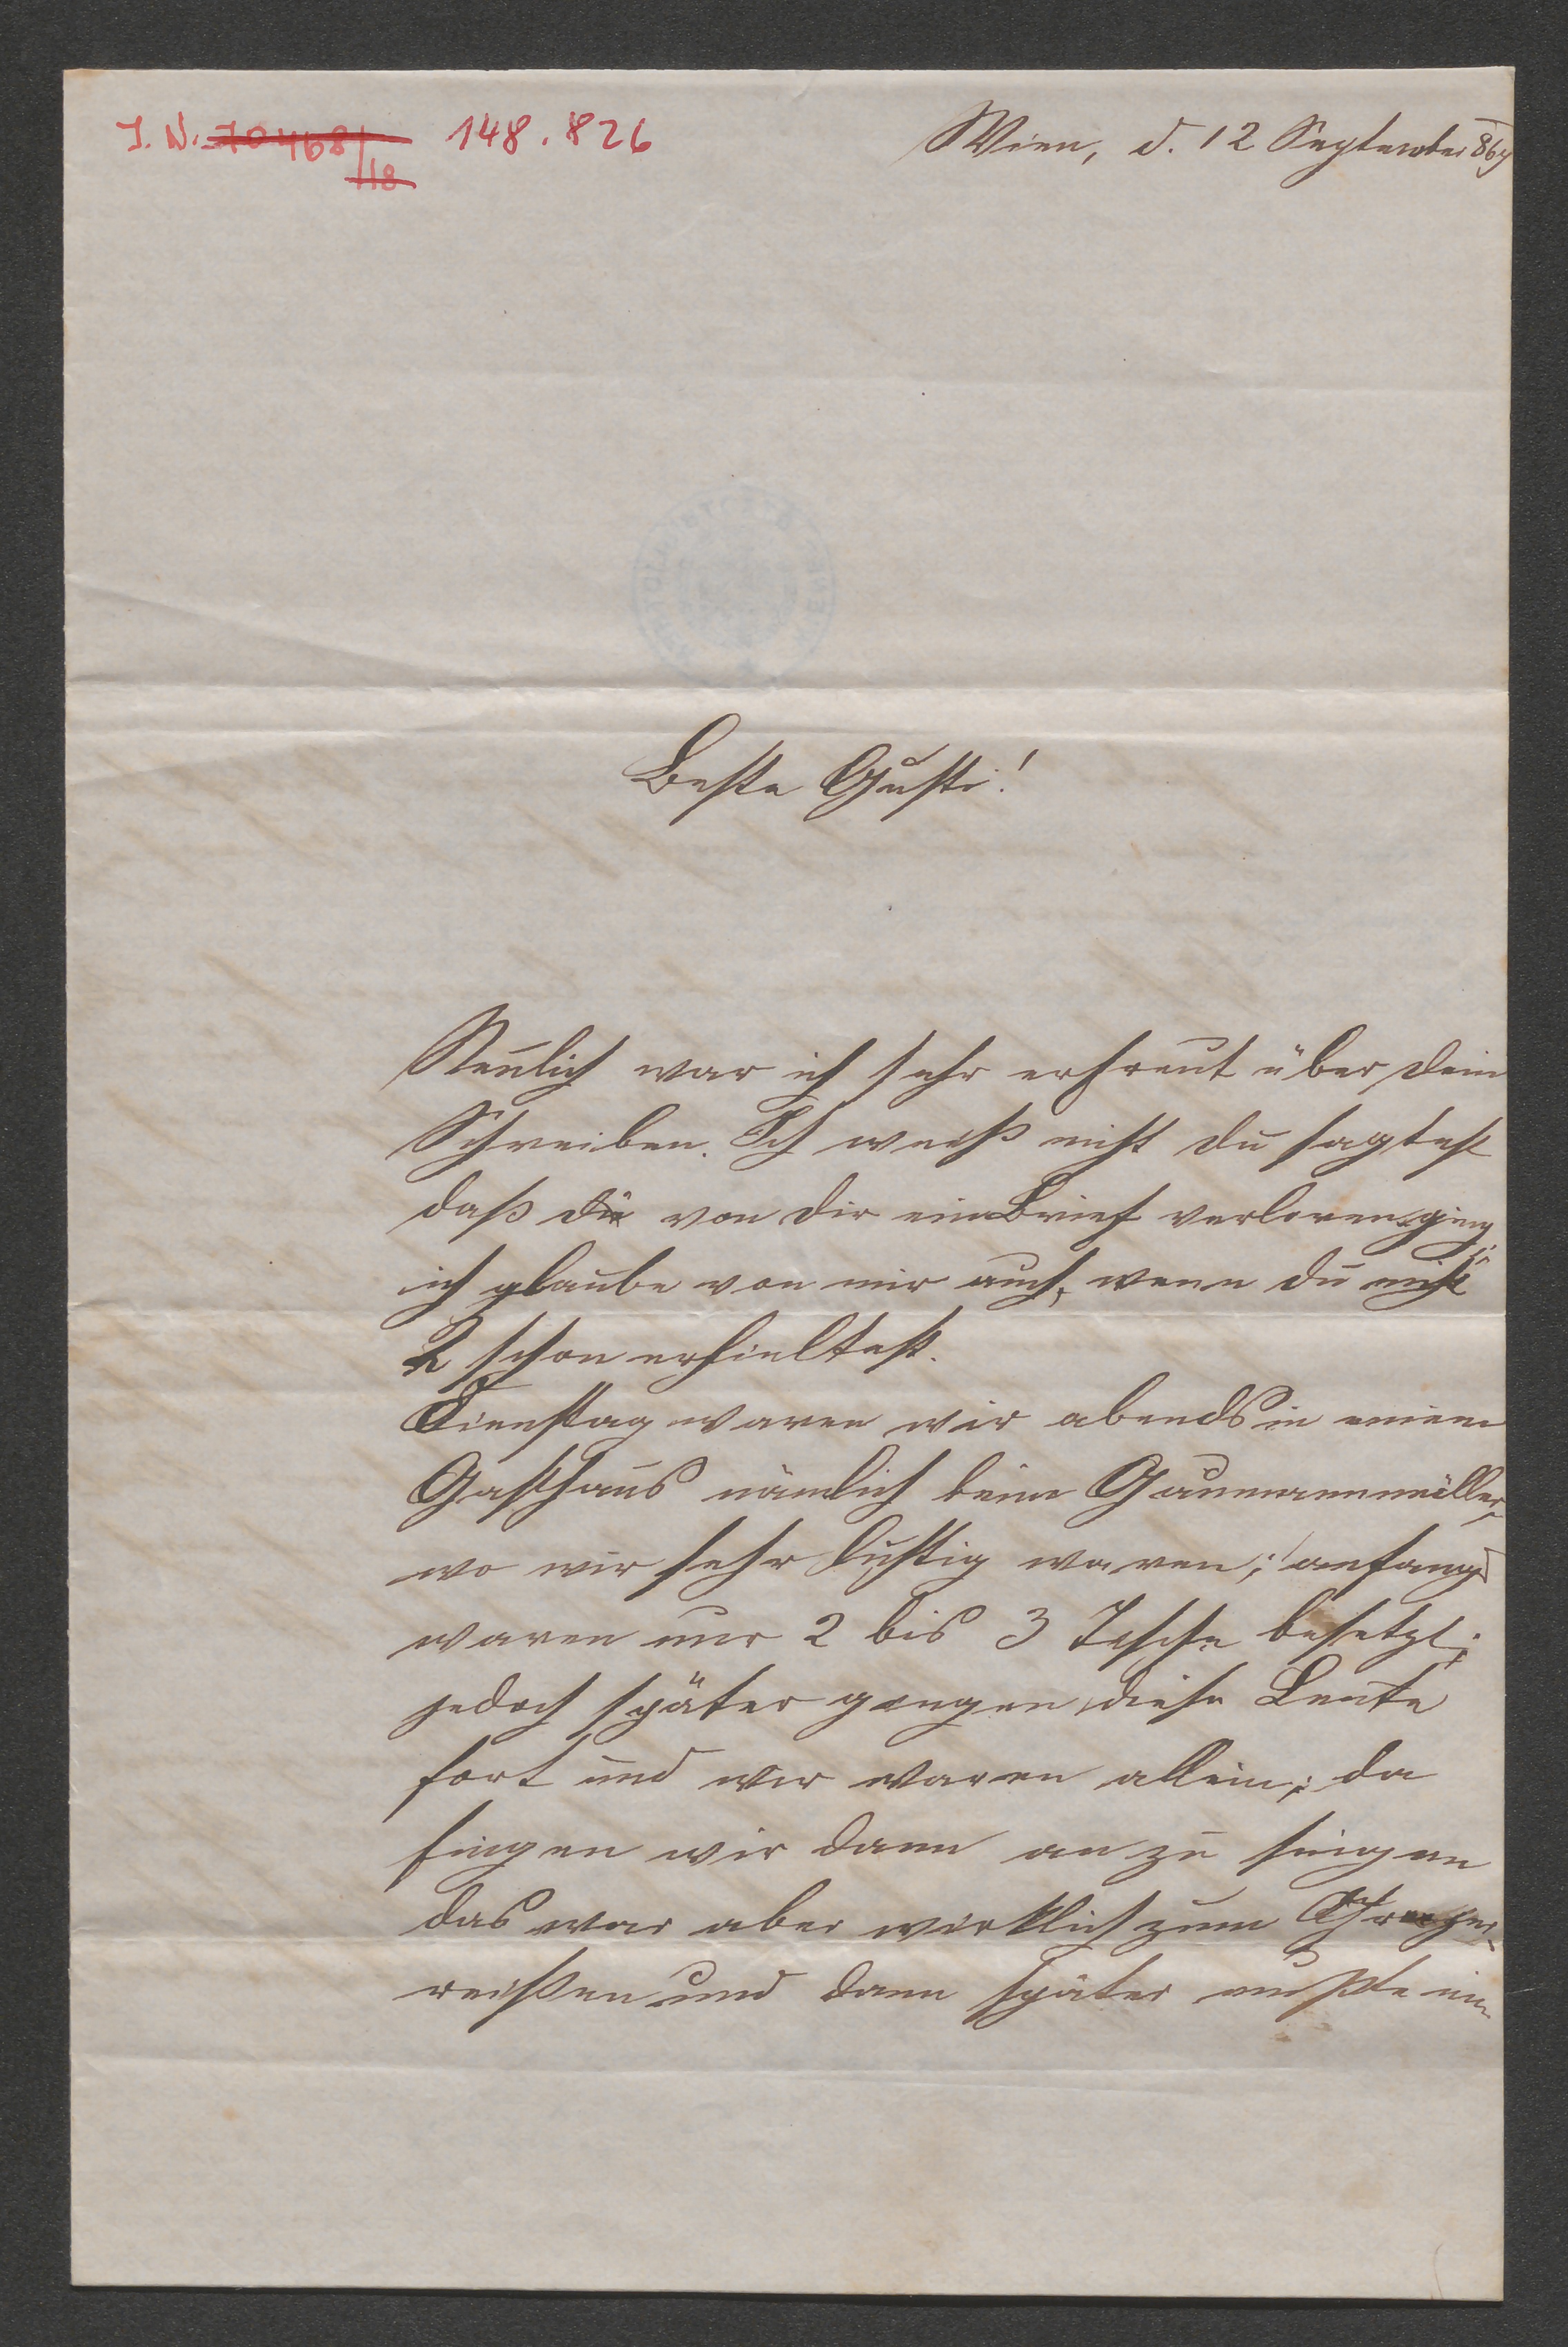 J. N. 70468/118 148.826
Wien, d. 12 September 86
Beste Gusti!
Neulich war ich sehr erfreut über dein
Schreiben. Ich weiß nicht du sagtest
daß du von dir ein Brief verloren ging
ich glaube von mir auch, wenn du nicht
2 schon erhieltest.
Dienstag waren wir abends in einem
Gasthaus nämlich beim
wo wir sehr lustig waren; anfangs
waren nur 2 bis 3 Tische besetzt;
jedoch später gangen diese Leute
fort und wir waren allein; da
fingen wir dann an zu singen
das war aber wirklich zum
reißen und dann später mußte